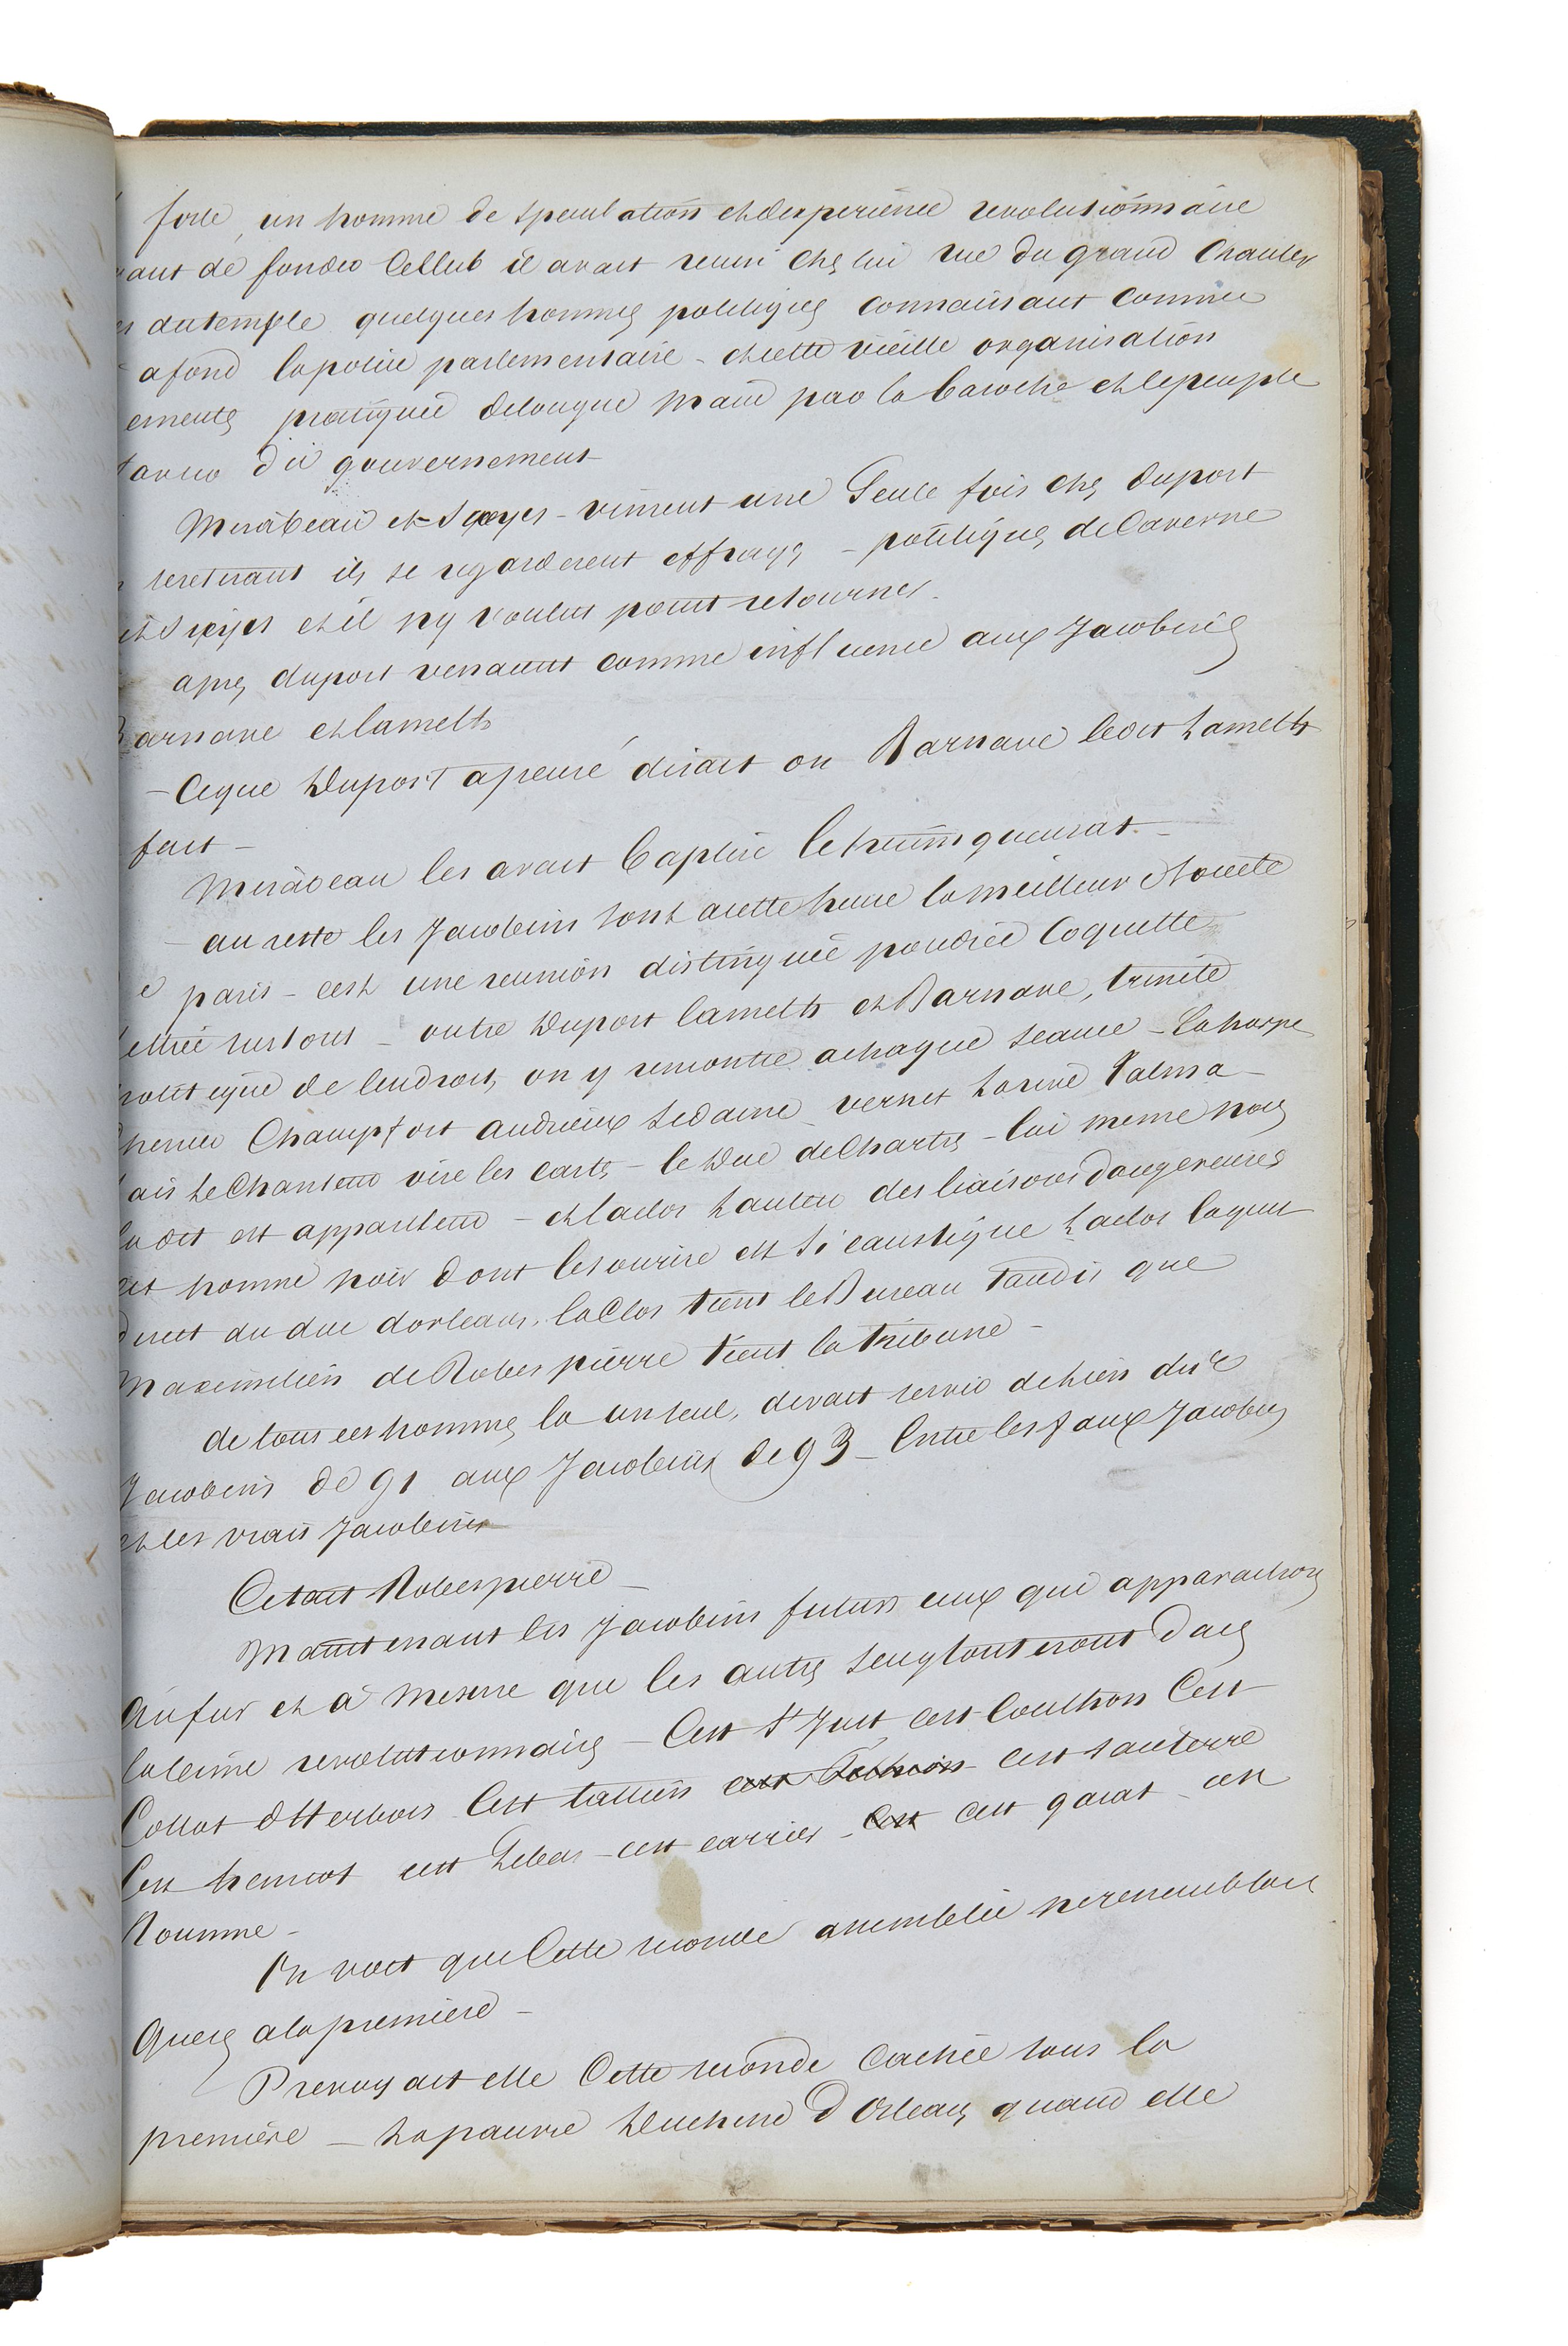 forte, un homme de speculation et dexperience revolutionnaire
vant de fonder le club il avait reuni chez lui rue du grand chantier
dutemple quelques hommes politiques connaissant comme
afond la police parlementaire - et cette vieille organisation
emeutes pratiquée delongue main par la baroche et le peuple
du gouvernement
Mirabeau et Syeyes - vinrent une Seule fois chez duport
seretirant ils se regarderent effrayes - politiques de Caverne
dit Sieyes et il ny voulut point retourner.
apres duport venaient comme influence aux Jacobins
Barnave et lameth
- Ceque Duport a pensé disait on Barnave le dit Lameth
fait -
Mirabeau les avait baptisé le triumgueusat -
- au reste les Jacobins sont acette heure la meilleur Societe
e paris - cest une reunion distinguée poudrée Coquette
lettrée surtout - outre Duport lameth et Barnave, trinité
politique de lendroit, on y rencontre achaque seance - Laharpe
henier Champfort andrieux Sedaine vernet Larive Talma
ais le Chanteur vise les cartes - le Duc de Chartres - lui meme nous
la dit est appariteur - et laclos Lauteur des liaisons dangereuses
cet homme noir dont le sourire est si caustique Laclos lagent
direct du duc dorleans. laClos tient le Bureau tandis que
Maximilien de Robespierre tient la tribune -
de tous ces hommes la un seul, devait servir de lien des
Jacobins de 91 aux Jacobins de 93 - Entre les faux Jacobins
et les vrais Jacobins
Cetait Robespierre -
Maintenant les Jacobins futurs ceux qui apparaitrons
Au fur et a mesure que les autres sengloutiront dans
labime revolutionnaire - Cest St Just cest Couthon Cest
Collot dHerbois Cest tallien cest cest santerre
Cest henriot cest Lebas - cest carrier - Cest cest garat - cest
Romme -
On voit que Cette seconde assemblée ne ressemblait
Guere a la premiere -
Prevoyait elle Cette seconde cachée sous la
premiere - La pauvre Duchesse dOrleans quand elle